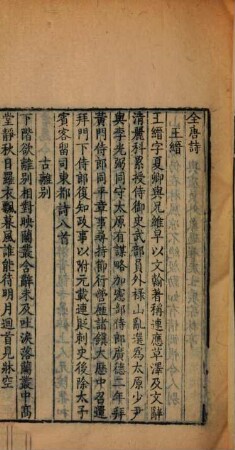 全唐詩
王縉
王縉字夏卿與兄維早以文翰著稱連應草澤及文辭
清麗科累授侍御史武部員外祿山亂選為太原少尹
與李光弼同守太原有謀略加憲部侍郎廣德二年拜
黃門侍郎同平章事尋持節行營歷諸鎮大曆中召還
拜門下侍郎復知政事以附元載連貶刺史後除太子
賓客留司東都詩八首
古離別
下階欲離別相對映蘭叢含辭未及吐淚落蘭叢中高
堂靜秋日羅衣飄暮風誰能待明月迴首見牀空